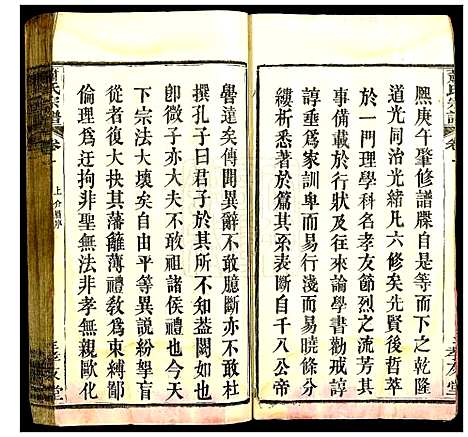 熙庚午肇修譜牒自是等而下之乾隆
道光同治光緒凡六修矣先賢後哲萃
於一門理學科名孝友節烈之流芳其
事備載於行狀及往來論學書勸戒諄
諄垂為家訓卑而易曉條分
縷析悉著於篇其系表斷自千八公帝
嚳遠矣傳聞異辭不敢臆斷亦不敢杜
撰孔子曰君子於其所不知蓋闕如也
卽微子亦大夫不敢祖諸侯禮也今天
下宗法大壞矣自由平等異說紛拏盲
從者復大抉其藩籬薄禮教為束縛鄙
倫理為迂拘非聖無法非孝無親歐化
蕭氏宗譜
卷一
上
孝友堂
蕭氏宗譜
卷一
孝友堂